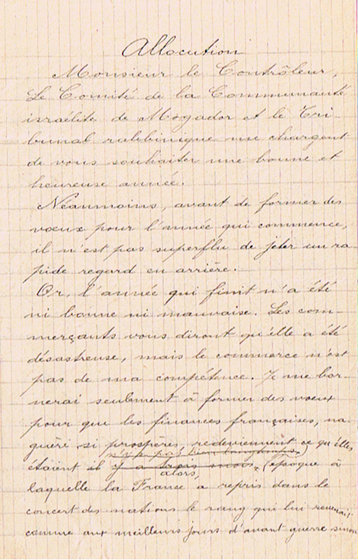 Allocution
Monsieur le Contrôleur,
Le Comité de la Communauté
israélite de Mogador et le Tri-
bunal rabbinique me chargent
de vous souhaiter une bonne et
heureuse année.
Néanmoins, avant de former des
vœux pour l'année qui commence,
il n'est pas superflu de jeter un ra-
pide regard en arrière.
Or, l'année qui finit n'a été
ni bonne ni mauvaise. Les com-
merçants vous diront qu'elle a été
désastreuse, mais le commerce n'est
pas de ma compétence. Je me bor-
nerai seulement à former des vœux
pour que les finances françaises, na-
guère si prospères, redeviennent ce qu'elles
n'y a pas bien longtemps,)
étaient il y a trois mois, (époque à
alors,
laquelle la France a repris dans le
concert des nations le rang qui lui revenait
comme aux meilleurs jours d'avant guerre sinon